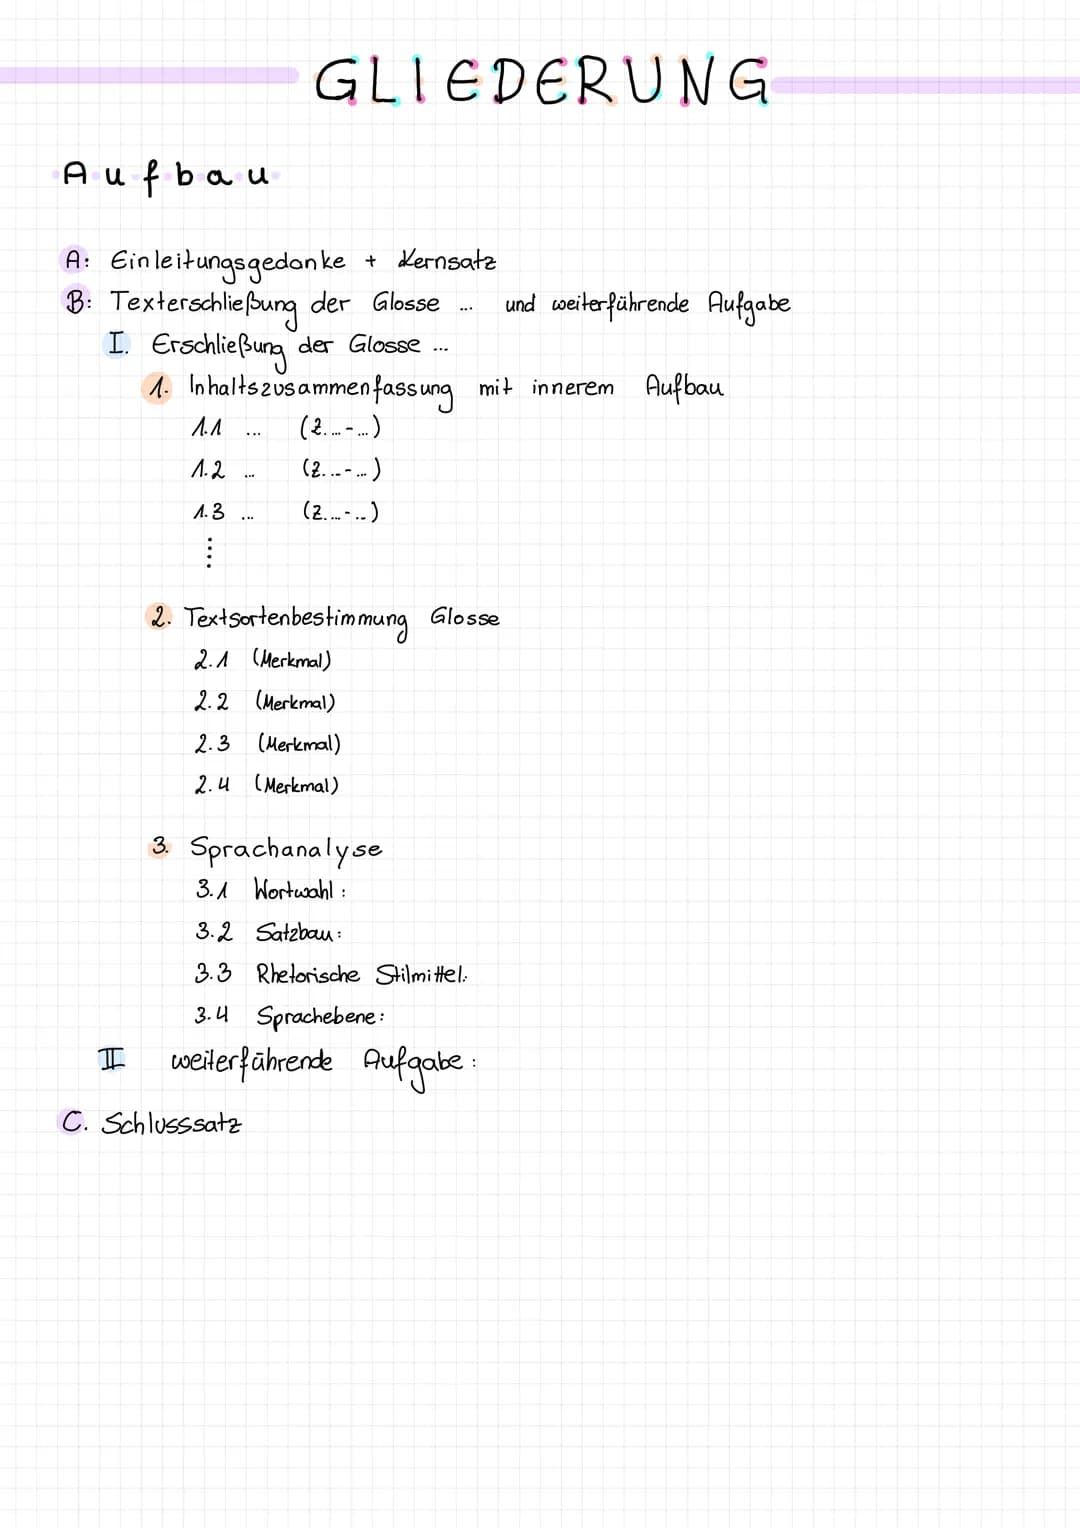 GLIEDERUNG
Aufbau
A: Einleitungsgedanke + Kernsatz
B: Texterschließung der Glosse ... und weiterführende Aufgabe
I. Erschließung der Glosse ...
1. Inhaltszusammenfassung mit innerem Aufbau
1.1 ... (Z. ... - ...)
1.2 ... (Z. ... - ...)
1.3 ... (Z. ... - ...)
⋮
2. Textsortenbestimmung Glosse
2.1 (Merkmal)
2.2 (Merkmal)
2.3 (Merkmal)
2.4 (Merkmal)
3. Sprachanalyse
3.1 Wortwahl:
3.2 Satzbau:
3.3 Rhetorische Stilmittel:
3.4 Sprachebene:
II weiterführende Aufgabe:
C. Schlusssatz